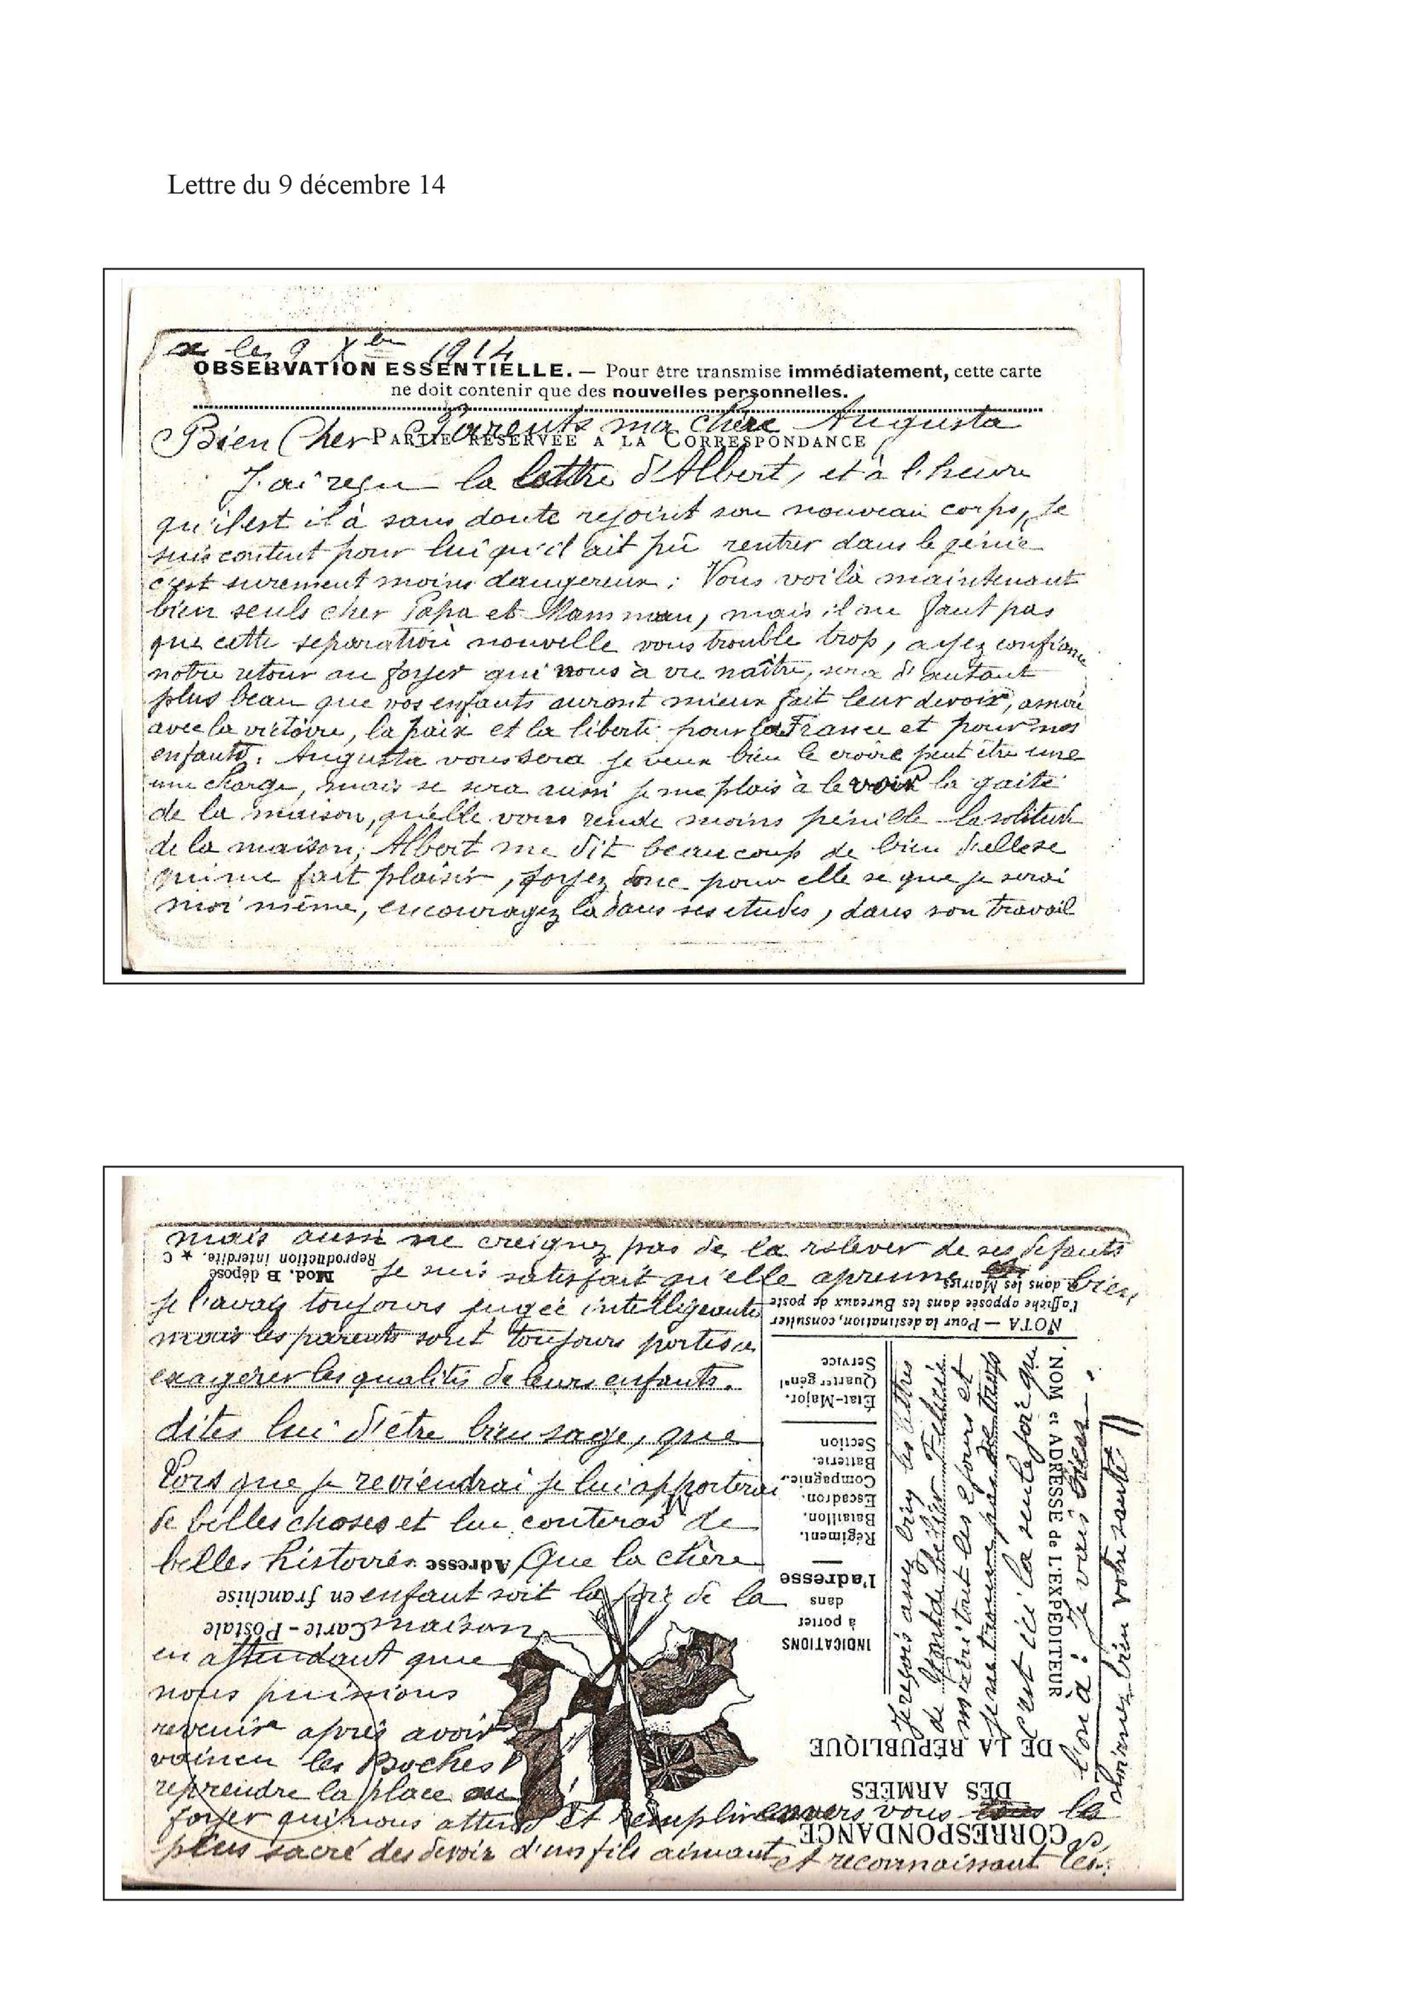 Lettre du 9 décembre 14
le 9 Xbre 1914
OBSERVATION ESSENTIELLE. — Pour être transmise immédiatement, cette carte
ne doit contenir que des nouvelles personnelles.
Bien Cher Parents ma chère Augusta
PARTIE RÉSERVÉE A LA CORRESPONDANCE
J'ai reçu la lettre d'Albert, et à l'heure
qu'il est il à sans doute rejoint son nouveau corps, Je
suis content pour lui qu'il ait pû rentrer dans le génie
c'est surement moins dangereux; Vous voilà maintenant
bien seuls cher Papa et Mamman, mais il ne faut pas
que cette separation nouvelle vous trouble trop, ayez confiance
notre retour au foyer qui nous à vu naître, sera d'autant
plus beau que vos enfants auront mieux fait leur devoir,
avec la victoire, la paix et la liberté pour la France et pour nos
enfants. Augusta vous sera je veux bien le croire peut être une
une charge, mais se sera aussi je me plais à le voir la gaité
de la maison, qu'elle vous rende moins pénible la solitude
de la maison, Albert me dit beaucoup de bien d'elle se
qui me fait plaisir, soyez donc pour elle se que je serai
moi même, encouragez la dans ses etudes, dans son travail
mais aussi ne creignez pas de la relever de ses defauts
Reproduction interdite. ★ C
Mod. B déposé
Je suis satisfait qu'elle aprenne bien
je l'avais toujours jugée intelligeante
mais les parents sont toujours portés a
exagérer les qualités de leurs enfants.
dites lui d'être bien sage, que
lors que je reviendrai je lui apporterai
de belles choses et lui conterai de
belles histoires. Que la chère
Adresse
enfant soit la joie de la
en franchise
maison
Carte-Postale
en attendant que
nous puissions
revenir aprés avoir
vaincu les Boches
reprendre la place au
foyer qui nous attend et remplir envers vous le
plus sacré des devoir d'un fils aimant et reconnaissant
NOTA — Pour la destination, consulter
l'affiche apposée dans les Bureaux de poste
& dans les Mairies
INDICATIONS
à porter
dans
l'adresse
—
Régiment.
Bataillon.
Escadron.
Compagnie.
Batterie.
Section
État-Major.
Quartier génal
Service
CORRESPONDANCE
DES ARMÉES
DE LA RÉPUBLIQUE
NOM et ADRESSE de L'EXPÉDITEUR
Je reçois assez bien les lettres
de
m'écrit tout les 2 jours et
je ne trouve pas de trop
c'est ici la seule joie que
l'on à: Je vais bien.
Soignez bien votre santé